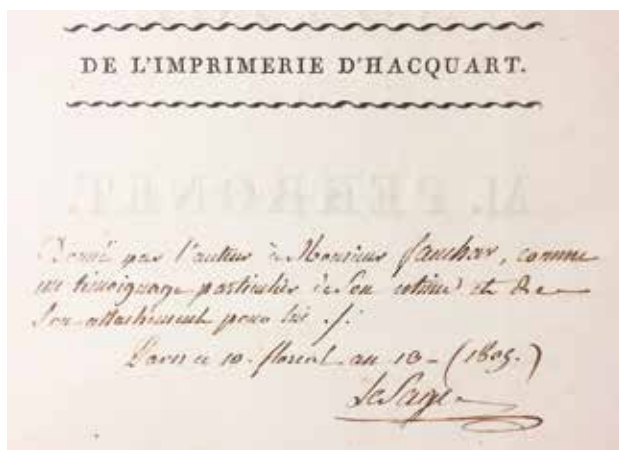 DE L'IMPRIMERIE D'HACQUART.
M. PERRONET.
Donné par l'auteur à Monsieur fauchar, comme
un témoignage particulier de son estime et de
son attachement pour lui ./.
Paris ce 10. floréal an 13 - (1805.)
LeSage